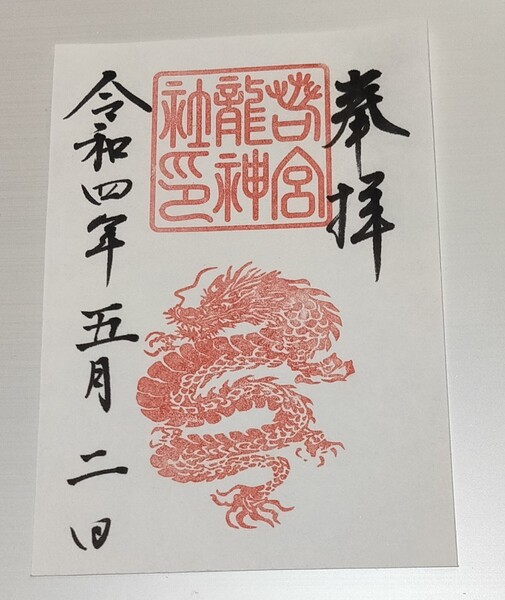 奉拝
若宮
龍神
社印
令和四年五月二日